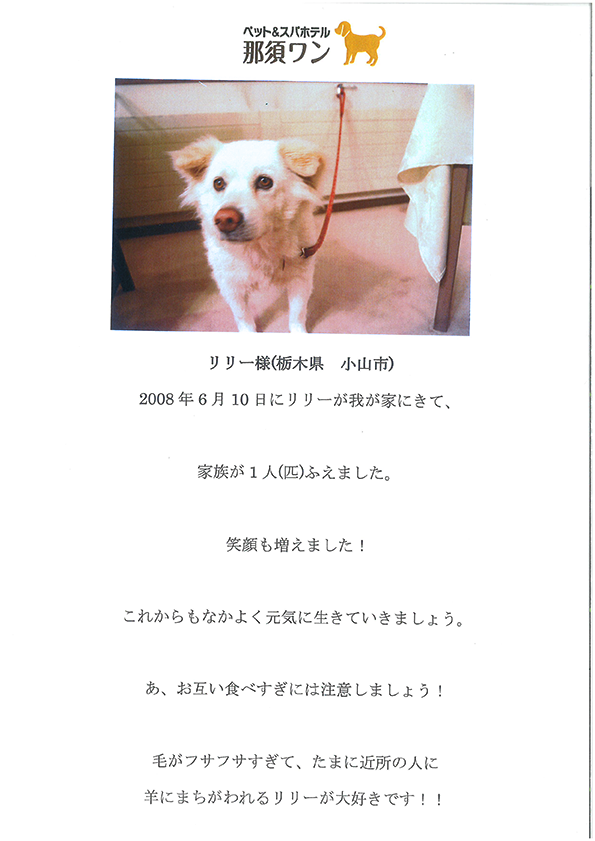 ペット&スパホテル
那須ワン
リリー様(栃木県　小山市)
2008年6月10日にリリーが我が家にきて、
家族が1人(匹)ふえました。
笑顔も増えました！
これからもなかよく元気に生きていきましょう。
あ、お互い食べすぎには注意しましょう！
毛がフサフサすぎて、たまに近所の人に
羊にまちがわれるリリーが大好きです！！